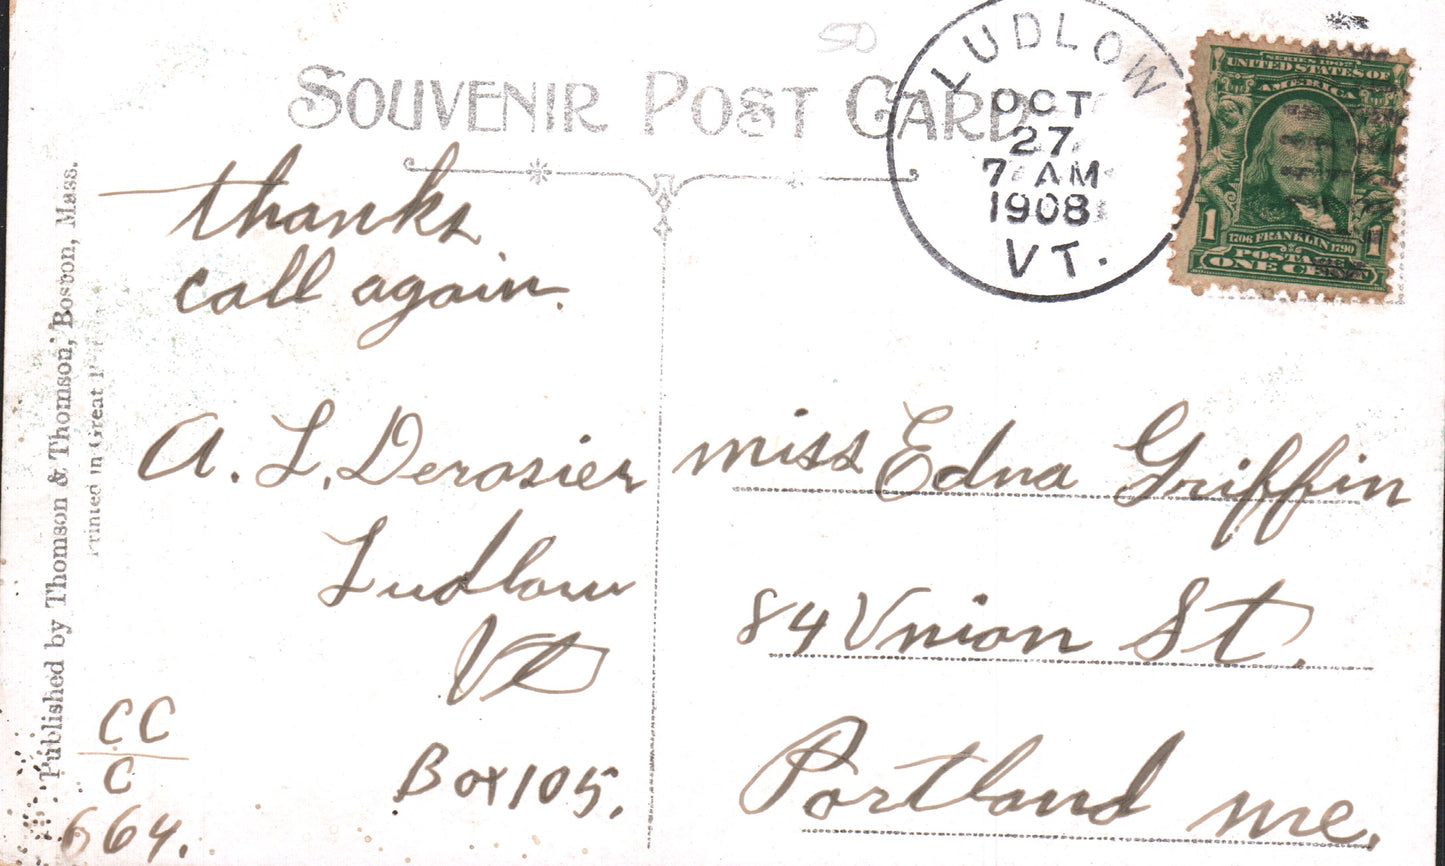 50
SOUVENIR POST CARD
LUDLOW
OCT
27
7 AM
1908
VT.
SERIES 1902
UNITED STATES OF
AMERICA
1 1
1706 FRANKLIN 1790
POSTAGE
ONE CENT
Published by Thomson & Thomson, Boston, Mass.
Printed in Great
thanks
call again.
A. L. Derosier
Ludlow
Vt
Box 105.
CC
C
664.
miss Edna Griffin
84 Union St.
Portland me.